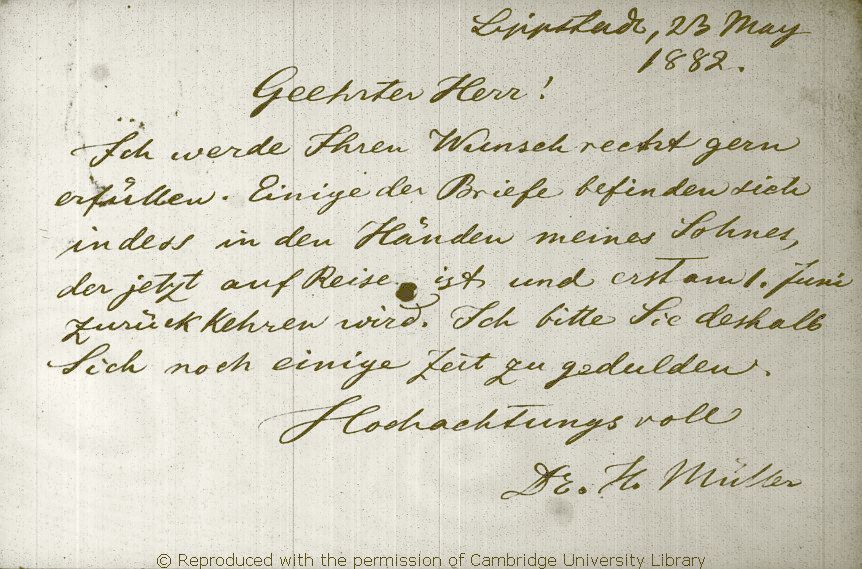 Lippstadt, 23 May
1882.
Geehrter Herr!
Ich werde Ihren Wunsch recht gern
erfüllen. Einige der Briefe befinden sich
indess in den Händen meines Sohnes,
der jetzt auf Reise ist und erst am 1. Juni
zurückkehren wird. Ich bitte Sie deshalb
Sich noch einige Zeit zu gedulden.
Hochachtungsvoll
Dr. H. Müller
© Reproduced with the permission of Cambridge University Library